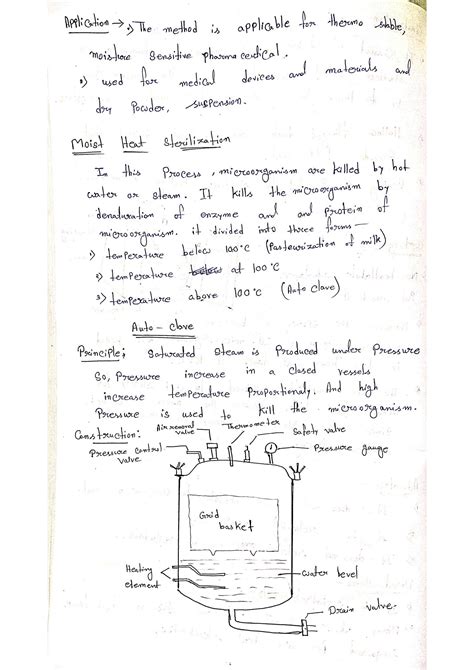 Application → 1) The method is applicable for thermo stable,
moisture sensitive pharmaceutical.
2) used for medical devices and materials and
dry Powder, suspension.
Moist Heat Sterilization
In this Process, microorganism are killed by hot
water or steam. It kills the microorganism by
denaturation of enzyme and and protein of
microorganism. it divided into three forms —
1) temperature below 100°C (Pasteurization of milk)
2) temperature at 100°C
3) temperature above 100°C (Auto clave)
Auto - clave
Principle; Saturated Steam is Produced under Pressure
So, Pressure increase in a closed vessels
increase temperature Proportionaly. And high
Pressure is used to kill the microorganism.
Construction:
Air removal valve
Thermometer
Safety valve
Pressure control valve
Pressure gauge
Grid basket
Heating element
Water level
Drain valve.